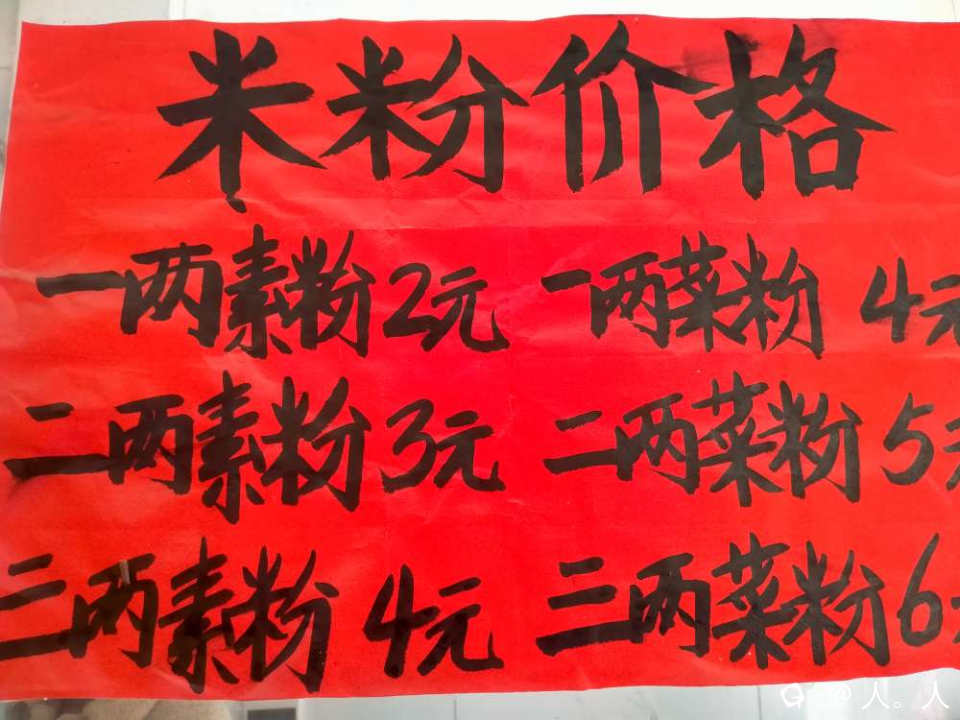 米粉价格
一两素粉2元 一两菜粉 4元
二两素粉3元 二两菜粉5元
三两素粉 4元 三两菜粉6
@人。人